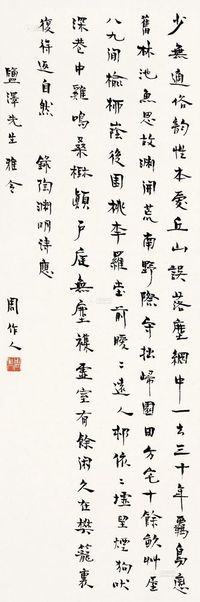 少無適俗韵性本愛丘山誤落塵網中一去三十年羈鳥戀
舊林池魚思故淵開荒南野際守拙歸園田方宅十餘畝艸屋
八九間榆柳蔭後園桃李羅堂前曖〻遠人邨依〻墟里煙狗吠
深巷中雞鳴桑樹顛戶庭無塵襍虛室有餘閑久在樊籠裏
復得返自然 錄陶淵明詩應
鹽澤先生雅令
周作人